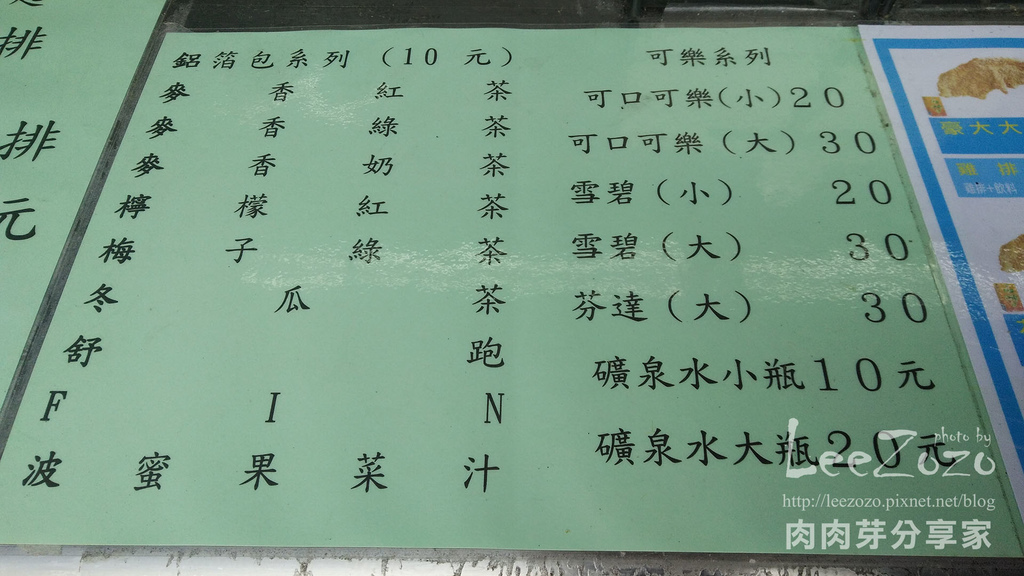 排
排
元
鋁箔包系列（10 元）
麥香紅茶
麥香綠茶
麥香奶茶
檸檬紅茶
梅子綠茶
冬瓜茶
舒跑
FIN
波蜜果菜汁
可樂系列
可口可樂(小)20
可口可樂（大）30
雪碧（小）20
雪碧（大）30
芬達（大）30
礦泉水小瓶10元
礦泉水大瓶20元
豪大大
雞排
雞排+飲料
photo by
LeeZozo
http://leezozo.pixnet.net/blog
肉肉芽分享家